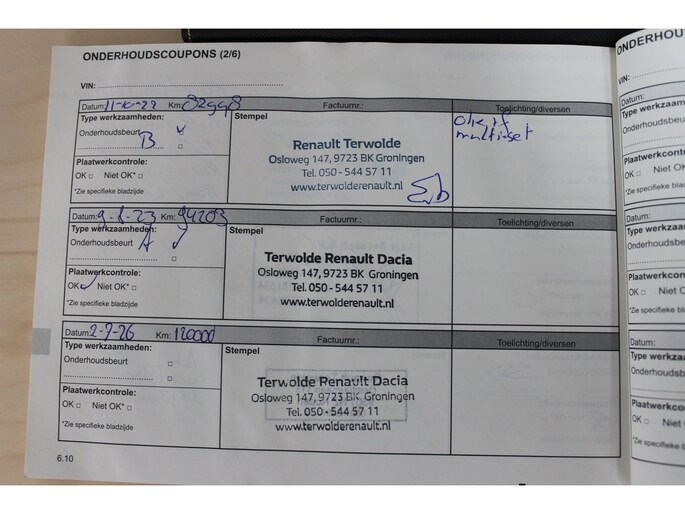 ONDERHOUDSCOUPONS (2/6)
VIN:
Datum: 11-10-22 Km: 82998 Factuurnr.: Toelichting/diversen
Type werkzaamheden:
Onderhoudsbeurt
B
Plaatwerkcontrole:
OK □ Niet OK* □
*Zie specifieke bladzijde
Stempel
Renault Terwolde
Osloweg 147, 9723 BK Groningen
Tel. 050 - 544 57 11
www.terwolderenault.nl
olie, if
multi-set
Datum: 9-8-23 Km: 94203 Factuurnr.: Toelichting/diversen
Type werkzaamheden:
Onderhoudsbeurt A
Plaatwerkcontrole:
OK Niet OK* □
*Zie specifieke bladzijde
Stempel
Terwolde Renault Dacia
Osloweg 147, 9723 BK Groningen
Tel. 050 - 544 57 11
www.terwolderenault.nl
Datum: 2-7-26 Km: 120000 Factuurnr.: Toelichting/diversen
Type werkzaamheden:
Onderhoudsbeurt □
Plaatwerkcontrole:
OK □ Niet OK* □
*Zie specifieke bladzijde
Stempel
Terwolde Renault Dacia
Osloweg 147, 9723 BK Groningen
Tel. 050 - 544 57 11
www.terwolderenault.nl
6.10
ONDERHOU
VIN:
Datum:
Type werkzaam
Onderhoudsbe
Plaatwerkcont
OK □ Niet O
*Zie specifieke bla
Datum:
Type werkza
Onderhoudsb
Plaatwerkco
OK □ Niet
*Zie specifieke
Datum:
Type werkz
Onderhoud
Plaatwerkc
OK □ Niet
*Zie specifie